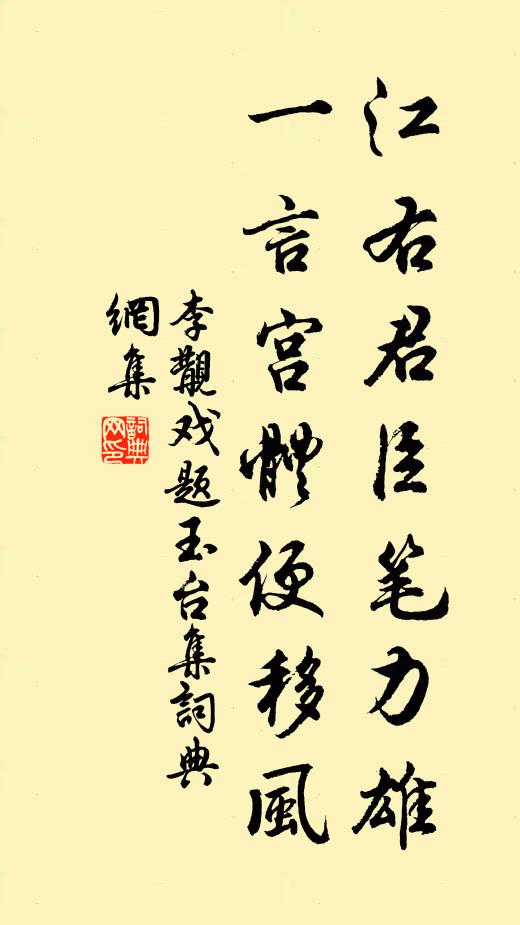 江右君臣笔力雄
一言宫體便移風
李覯戏题玉台集詞典
網集
詞典
网印